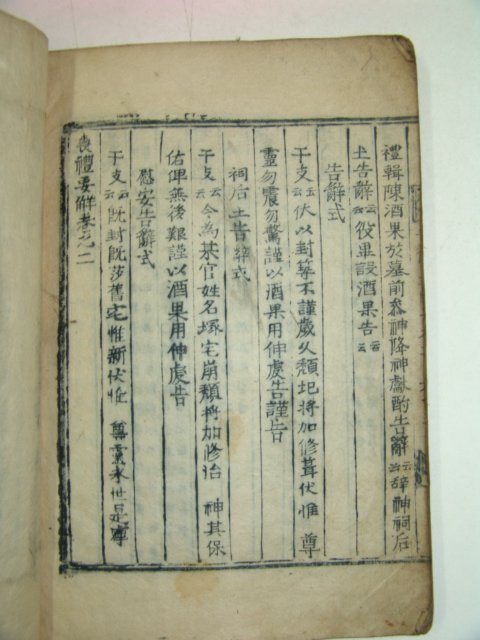 禮輯陳酒果於墓前叅神降神獻酌告辭云云辞神祠后
土告辭云云役畢設酒果告云云
告辭式
干支云云伏以封築不謹歲久頹圮將加修葺伏惟 尊
靈勿震勿驚謹以酒果用伸虔告謹告
祠后土告辞式
干支云云今為某官姓名塚宅崩頹將加修治 神其保
佑俾無後艱謹以酒果用伸虔告
慰安告辭式
干支云云既封既莎舊宅惟新伏惟 尊靈永世是寧
喪禮要解卷之二